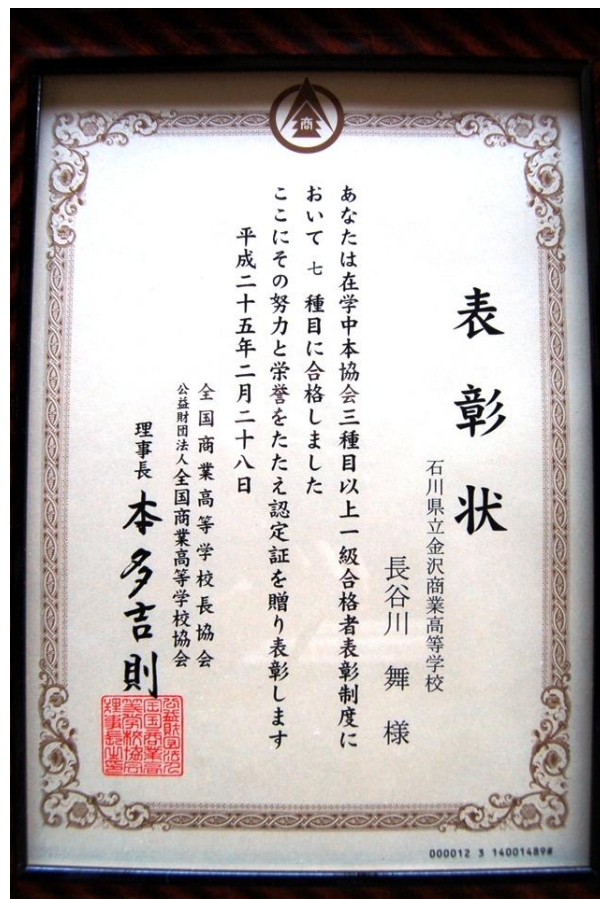 商
表彰状
石川県立金沢商業高等学校
長谷川 舞 様
あなたは在学中本協会三種目以上一級合格者表彰制度に
おいて 七 種目に合格しました
ここにその努力と栄誉をたたえ認定証を贈り表彰します
平成二十五年二月二十八日
全国商業高等学校長協会
公益財団法人全国商業高等学校協会
理事長 本多吉則
000012 3 14001489#